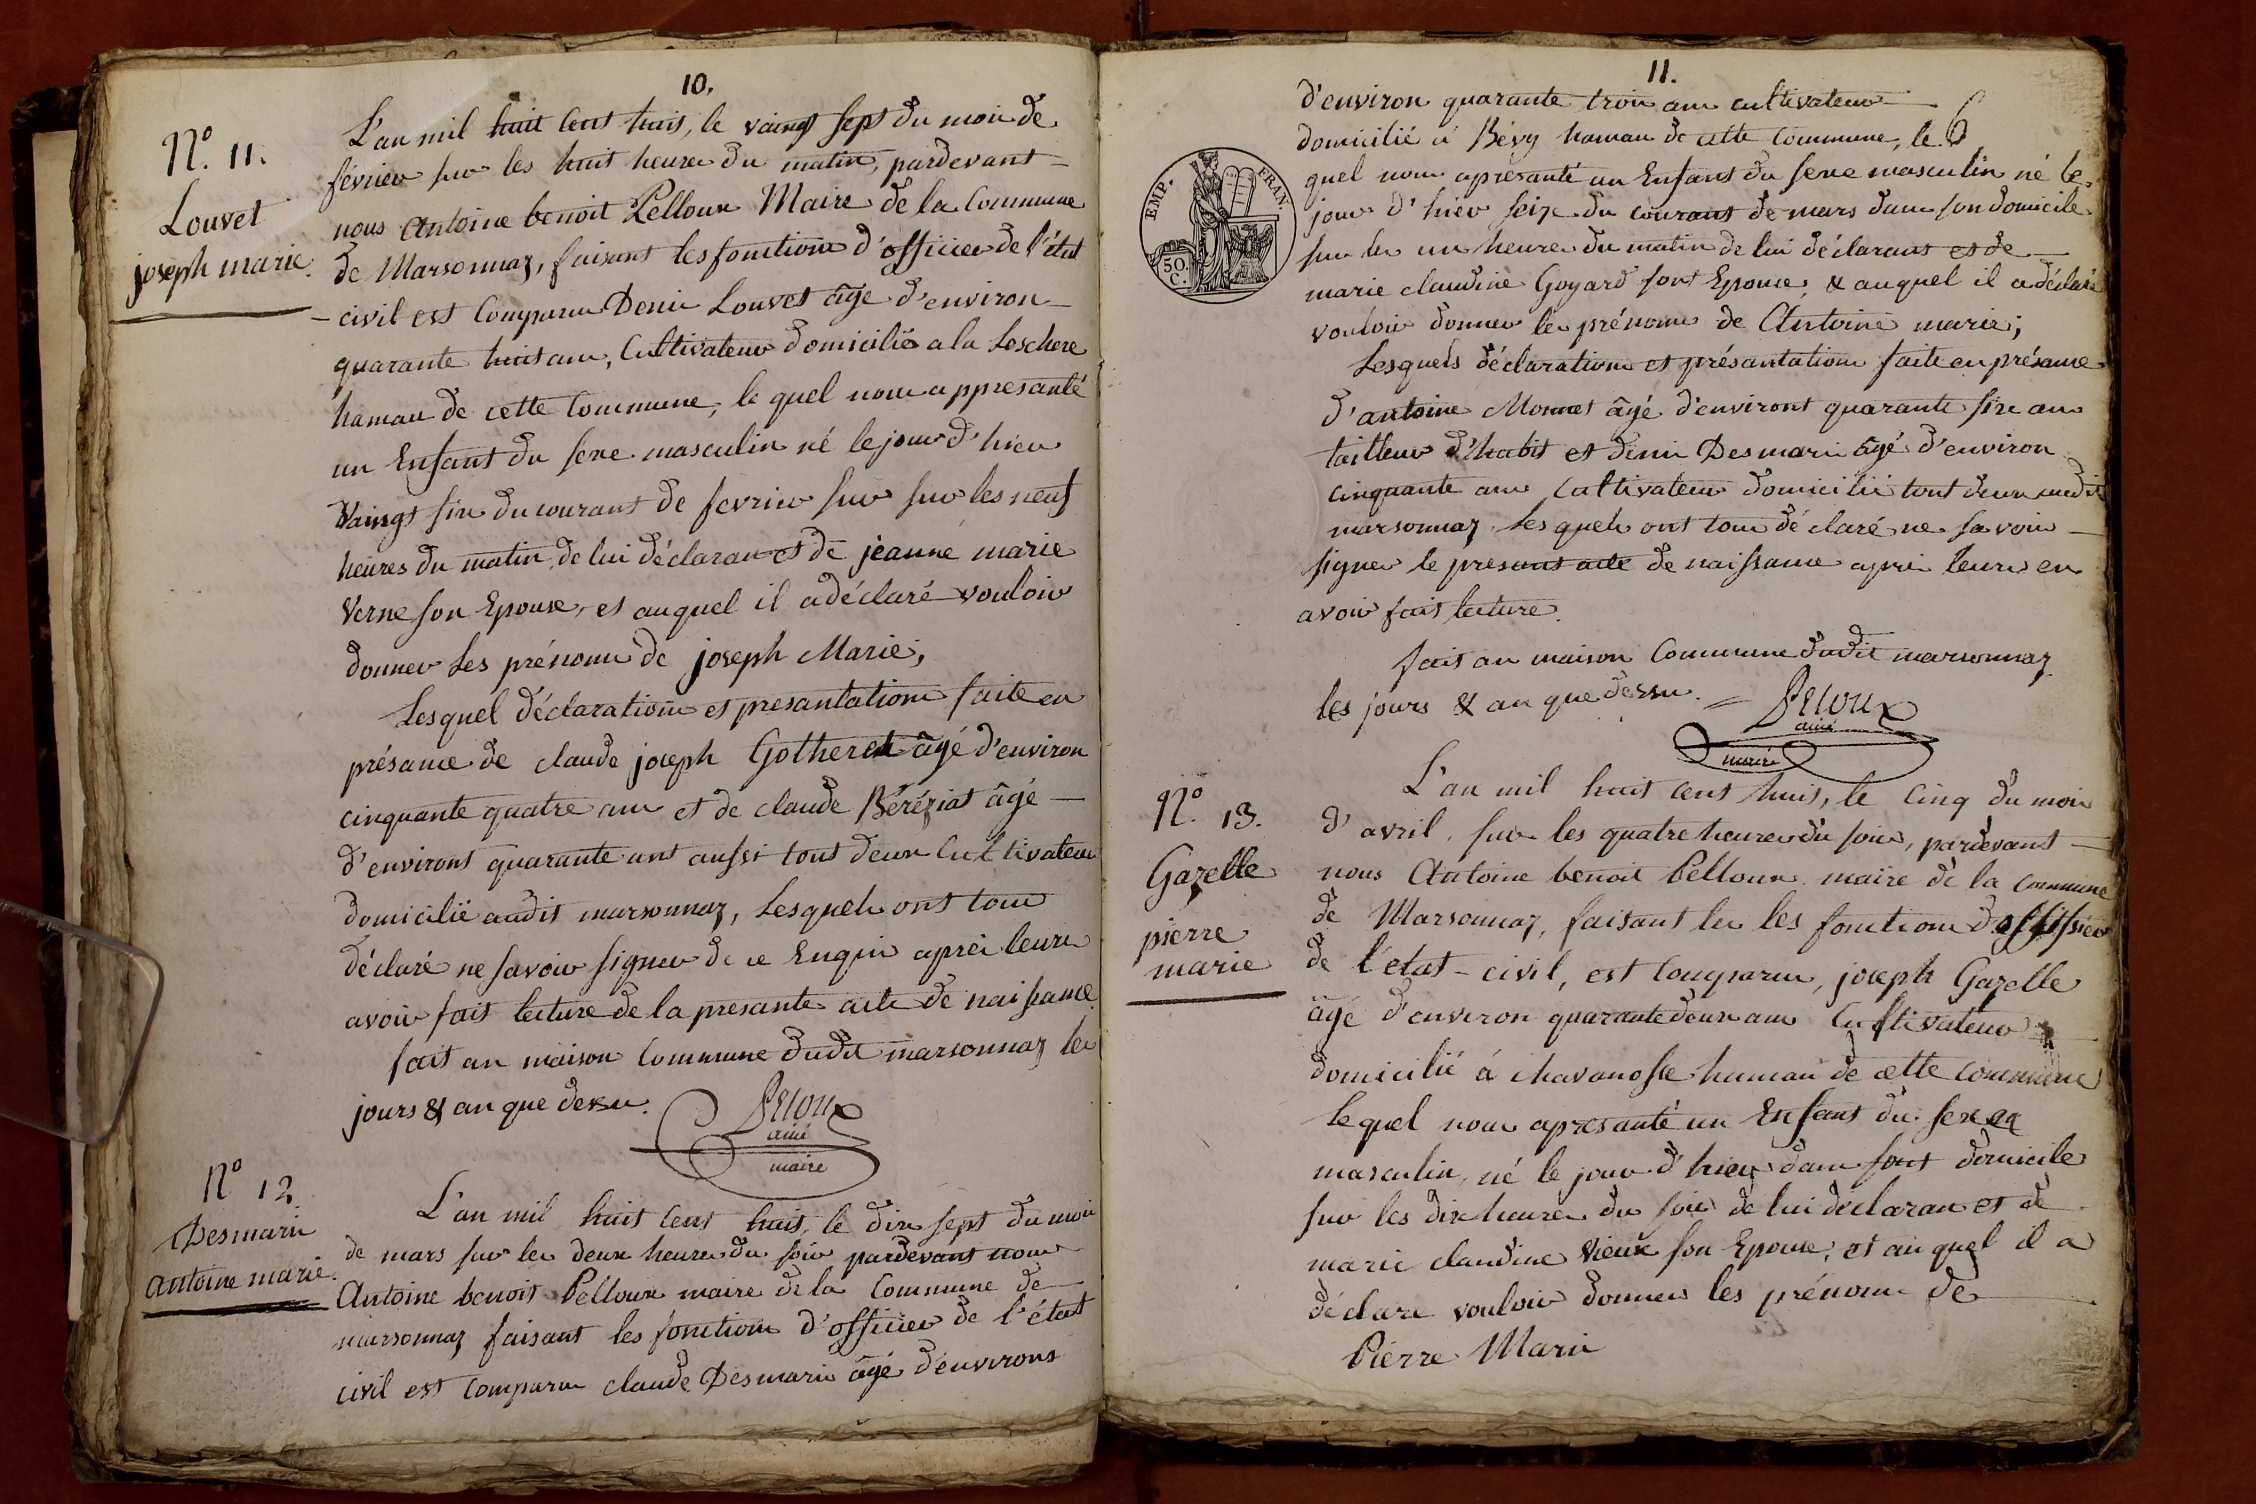 10.
N.º 11.
Louvet
joseph marie.
L'an mil huit cent huit, le vaingt sept du moi de
février sur les huit heures du matin, pardevant
nous Antoine benoit Pelloux Maire de la Commune
de Marsonnaz, faisant les fonctions d'officier de l'état
civil est Comparu Denis Louvet âgé d'environ
quarante huit ans, Cultivateur domicilié a la Leschere
hamau de cette Commune, le quel nous appresanté
un Enfant du sexe masculin né le jour d'hier
Vaingt six du courant de fevrier sur sur les neuf
heures du matin, de lui déclarant et de jeanne marie
Verne son Epouse, et auquel il a déclaré vouloir
donner Les prénoms de joseph Marie;
Lesquel déclarations et presantations faite en
présance de claude joseph Gotheret âgé d'environ
cinquante quatre ans et de claude Béréziat âgé
d'environt quarante ans aussi tout deux Cultivateurs
domicilié audit marsonnaz, Lesquels ont tous
déclaré ne savoir signer de ce Enqui après leurs
avoir fait lecture de la presante acte de naissance.
fait an maison Commune dudit marsonnaz les
jours & an que dessu.
Peloux
ainé
maire
Nº 12.
Desmaris
Antoine marie.
L'an mil huit cent huit, le dix sept du moi
de mars sur les deux heures du soir pardevant nous
Antoine benoit Pelloux maire de la Commune de
marsonnaz faisant les fonctions d'officier de l'état
civil est Comparu claude Desmaris âgé d'environs
11.
6
EMP. FRAN.
50. C.
d'environ quarante trois ans cultivateur
domicilié à Bévy hamau de cette Commune, le
quel nous apresanté un Enfant du sexe masculin né le
jour d'hier seize du courant de mars dans son domicile
sur les un heures du matin de lui déclarant et de
marie claudine Goyard sont Epouse, & auquel il a déclaré
vouloir donner les prénoms de Antoine marie;
Lesquels déclarations et présantations faite en présance
d'antoine Monnet âgé d'environt quarante six ans
tailleur d'habit et denis Desmaris âgé d'environ
cinquante ans Cultivateur domicilié tout deux audit
marsonnaz. Les quels ont tous déclaré ne savoir
signer le presant acte de naissance après leurs en
avoir fait lecture.
fait an maison Commune dudit marsonnaz
les jours & an que dessu.
Peloux
ainé
maire
Nº. 13.
Gazelle
pierre
marie
L'an mil huit cent huit, le Cinq du moi
d'avril, sur les quatre heures du soir, pardevant
nous Antoine benoit Pelloux maire de la Commune
de Marsonnaz, faisant les les fonctions d'offissier
de l'état-civil, est Comparu, joseph Gazelle
âgé d'environ quarante deux ans Cultivateur
domicilié à chavanosse hamau de cette commune
le quel nous apresanté un Enfant du sexe
masculin, né le jour d'hier dans sont domicile
sur les dix heures du soir de lui déclarant et de
marie claudine Vieux son Epouse, et auquel il a
déclare vouloir donner les prénoms de
Pierre Marie